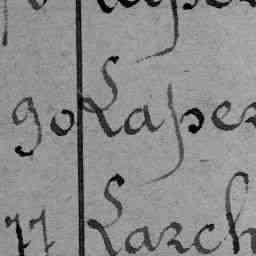 90 Laper
77 Larch